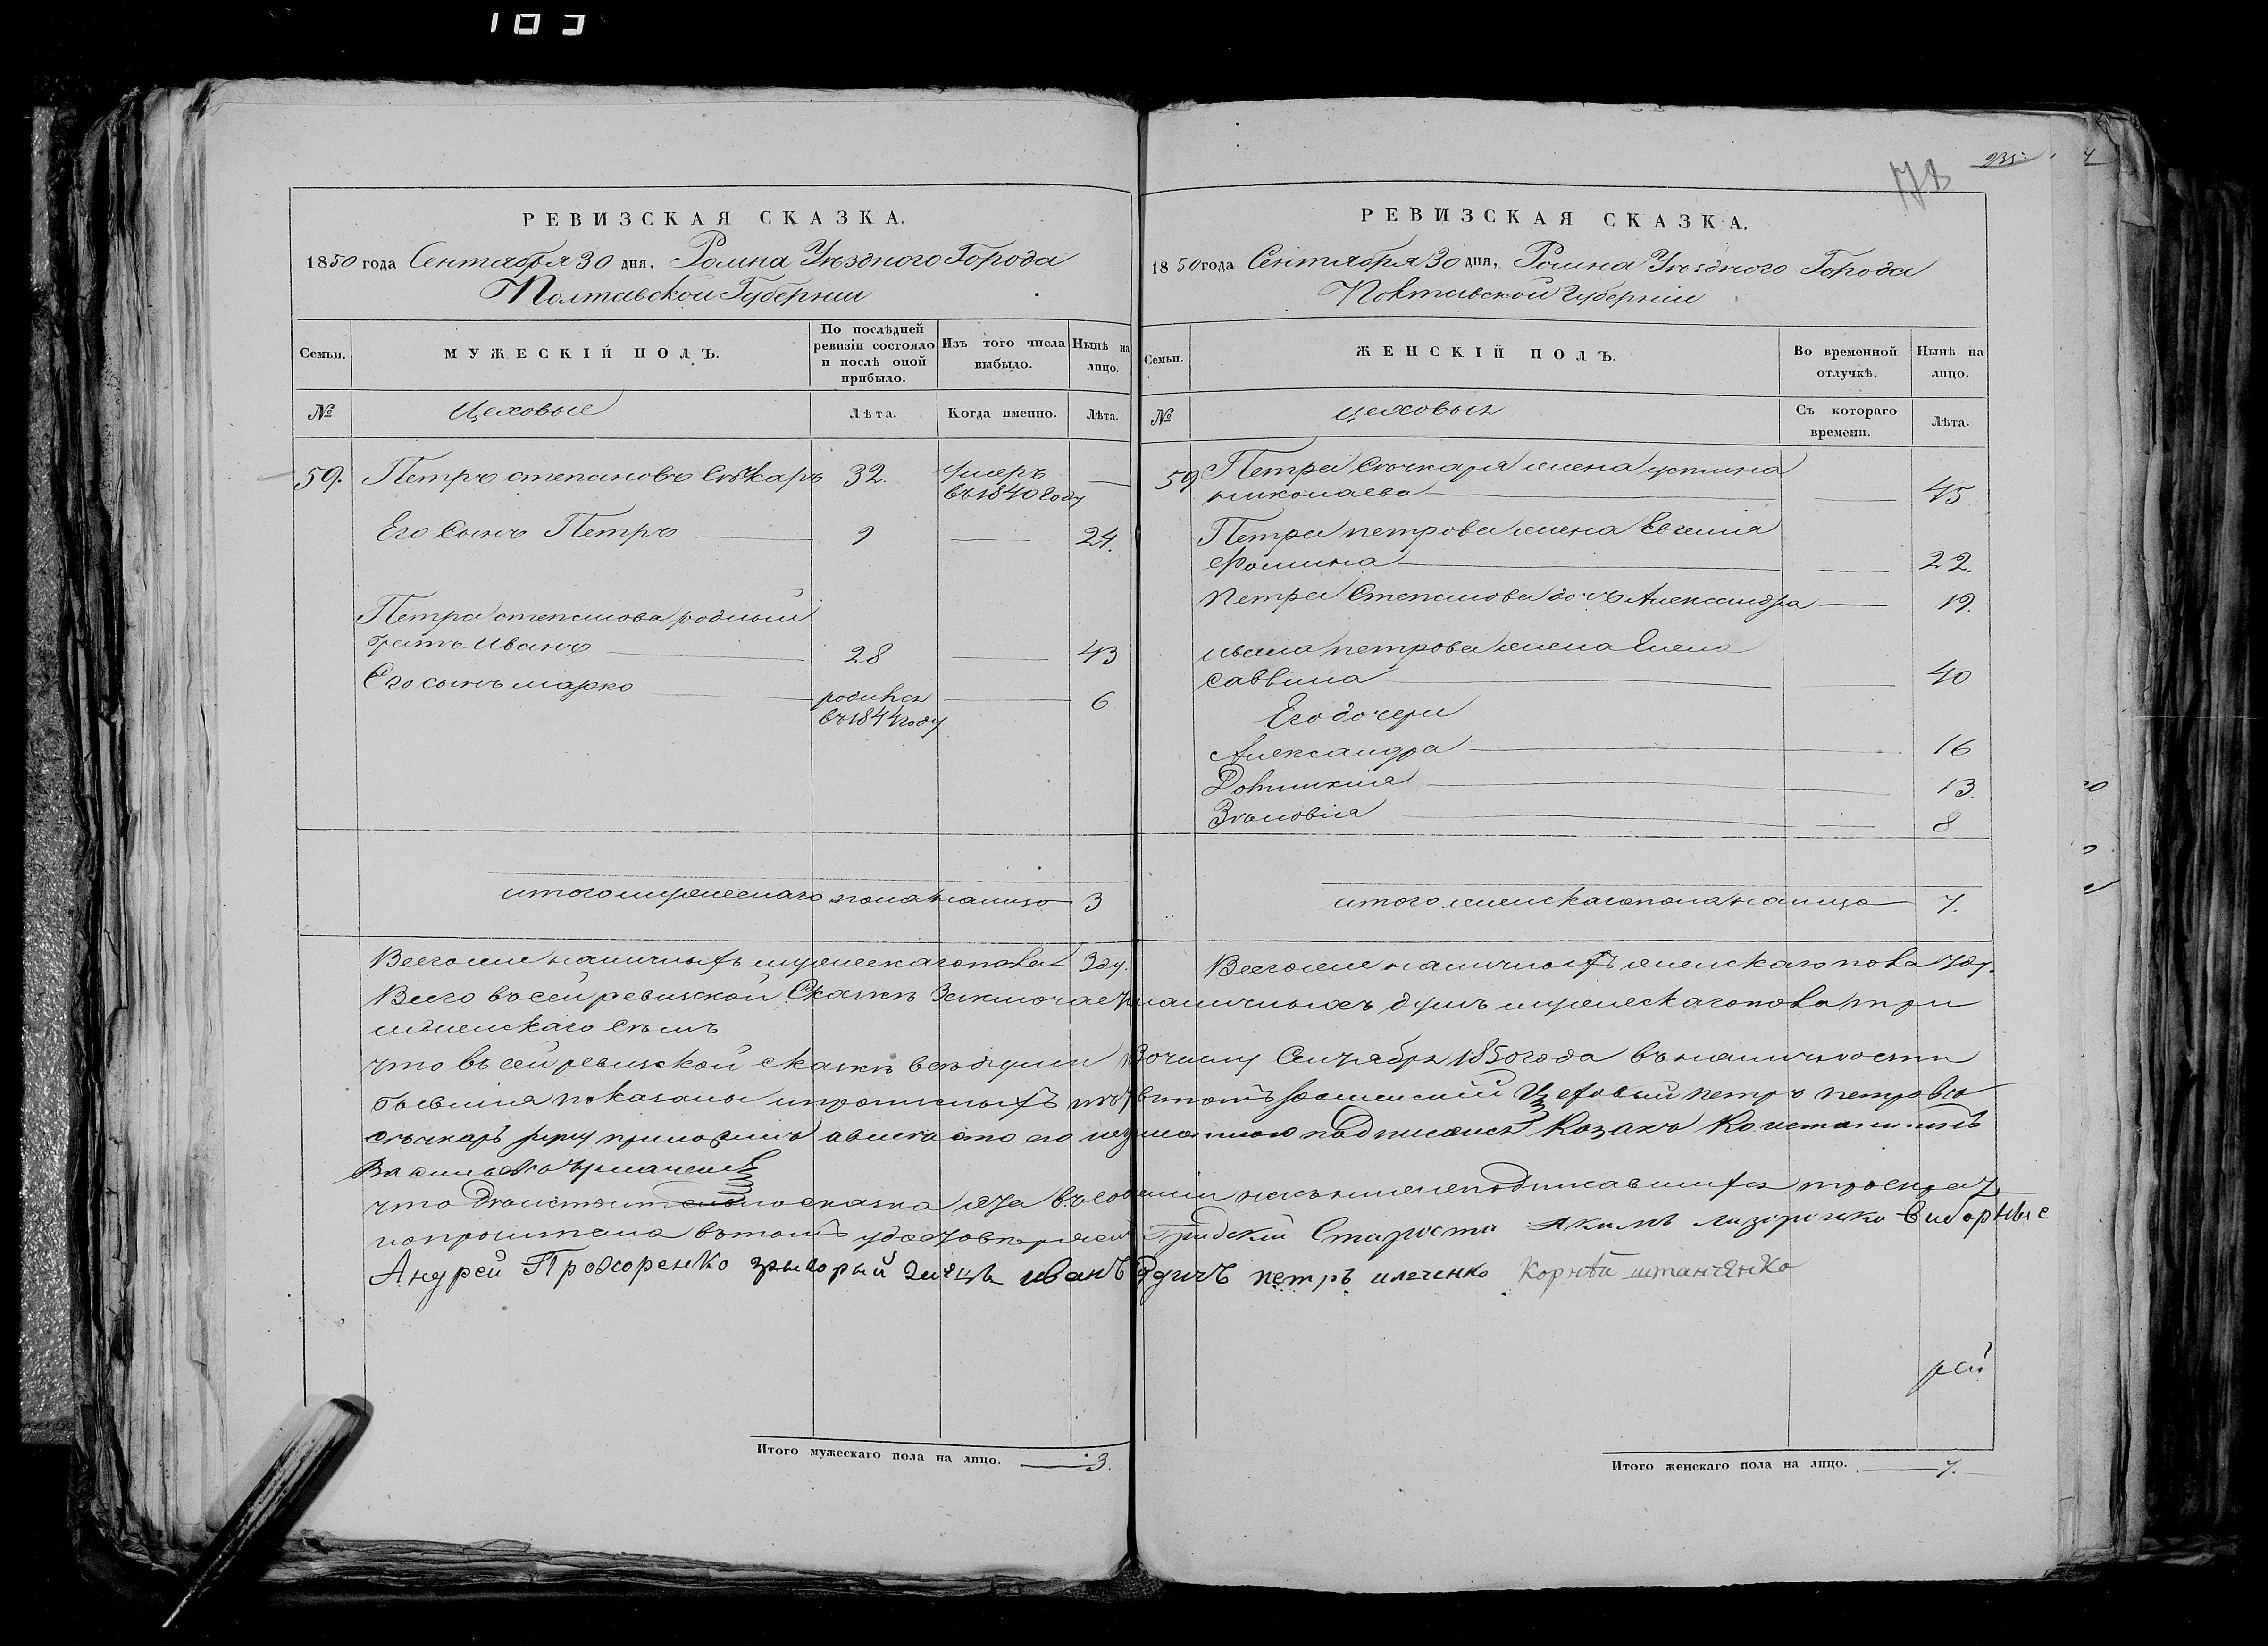 103
235
РЕВИЗСКАЯ СКАЗКА.
1850 года Сентября 30 дня, Ромна Уѣзднаго Города
Полтавской Губерніи
Семьи.
МУЖЕСКІЙ ПОЛЪ.
По послѣдней ревизіи состояло и послѣ оной прибыло.
Изъ того числа выбыло.
Нынѣ на лицо.
№
Цеховые
Лѣта.
Когда именно.
Лѣта.
59. Петръ степановъ Сѣчкаръ 32. Умеръ —
въ 1840 году
Его Сынъ Петръ 9 — 24.
Петра степанова родный
братъ Иванъ 28 — 43
Его сынъ марко родился — 6
въ 1844 году
итого мужескаго пола на лицо 3
РЕВИЗСКАЯ СКАЗКА.
1850 года Сентября 30 дня, Ромна Уѣзднаго Города
Полтавской Губерніи
Семьи.
ЖЕНСКІЙ ПОЛЪ.
Во временной отлучкѣ.
Нынѣ на лицо.
№
цеховыя
Съ котораго времени.
Лѣта.
59 Петра Сѣчкаря жена устина
николаева — 45
Петра петрова жена Евгенія
Фомина — 22.
Петра Степанова дочь Александра — 19.
ивана петрова жена Елена
саввина — 40
Его дочери
Александра 16
Домникия 13.
Зѣновія — 8
итого женскаго пола на лицо 7.
Всего же наличныхъ мужескаго пола 3 ду.
Всего же наличныхъ женскаго пола 7 ду.
Всего въ сей ревизской Сказкѣ Заключает наличныхъ душъ мужескаго пола три
женскаго семь
что въ сей ревизской сказкѣ всѣ души по числу Сентября 1850 года въ наличности
бывшия показаны и прописныхъ нѣт в томъ роменскій Цеховый петръ петровъ
сѣчкаръ руку приложилъ а вместо его неграмотного подписался Козакъ Константинъ
Васильевъ
что действительно сказка сія въ собраніи нас нижеподписавшихся
и прочитана в томъ удостовѣряем Градскій Староста Якимъ лазоренко Виборные
Андрей Прохоренко грыгорый иванъ петръ илченко Корнѣй штанченко
Итого мужескаго пола на лицо. 3.
Итого женскаго пола на лицо. 7.